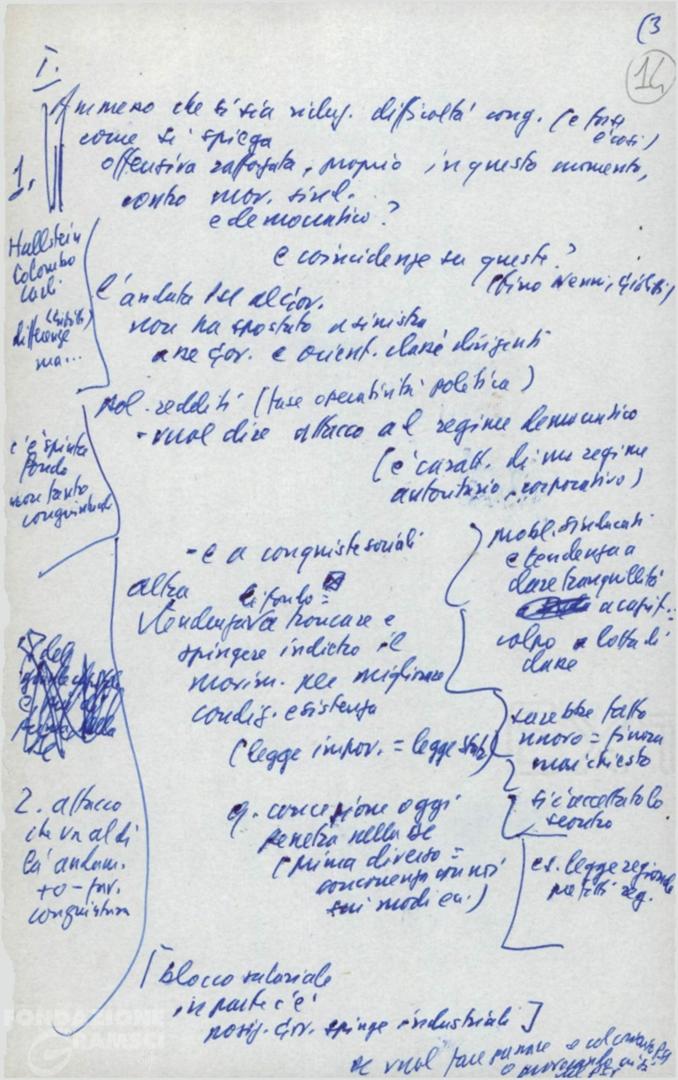 (3
14
I.
1.
Ammesso che si sia difficoltà cong. (e forse
è così)
come si spiega
offensiva rafforzata, proprio in questo momento,
contro mov. sind.
e democratico?
e coincidenze su queste?
(fino Nenni, Giolitti)
Hallstein
Colombo
Carli
differenze
ma...
L'andata PSI al Gov.
non ha spostato a sinistra
asse Gov. e orient. classi dirigenti
pol. redditi (fase operatività politica)
- vuol dire attacco al regime democratico
(è caratt. di un regime
autoritario, corporativo)
c'è spinta
fondo
non tanto
congiunturale
- e a conquiste sociali
altra di fondo =
tendenza a troncare e
spingere indietro il
movim. per migliorare
condiz. esistenza
(legge impov. = legge)
mobil. sindacati
e tendenza a
dare tranquillità
a capit. =
colpo a lotta di
classe
sarebbe fatto
nuovo = finora
mai chiesto
si è accettato lo
scontro
es. legge regionale
2. attacco
che va al di
là andam.
+ o - fav.
congiuntura
q. concezione oggi
penetra nella DC
(prima diverso =
concorrenza con noi
sui modi)
[blocco salariale
in parte c'è
posiz. Gov. spinge industriali]
FONDAZIONE
GRAMSCI